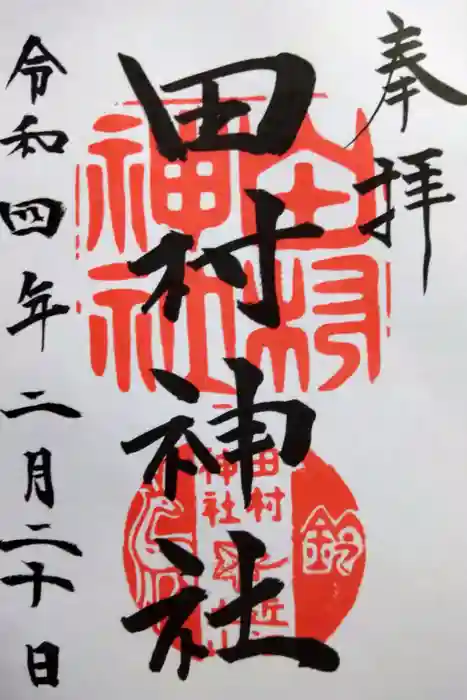 奉拝
田村神社
令和四年二月二十日
田村
神社
田村
神社
鈴